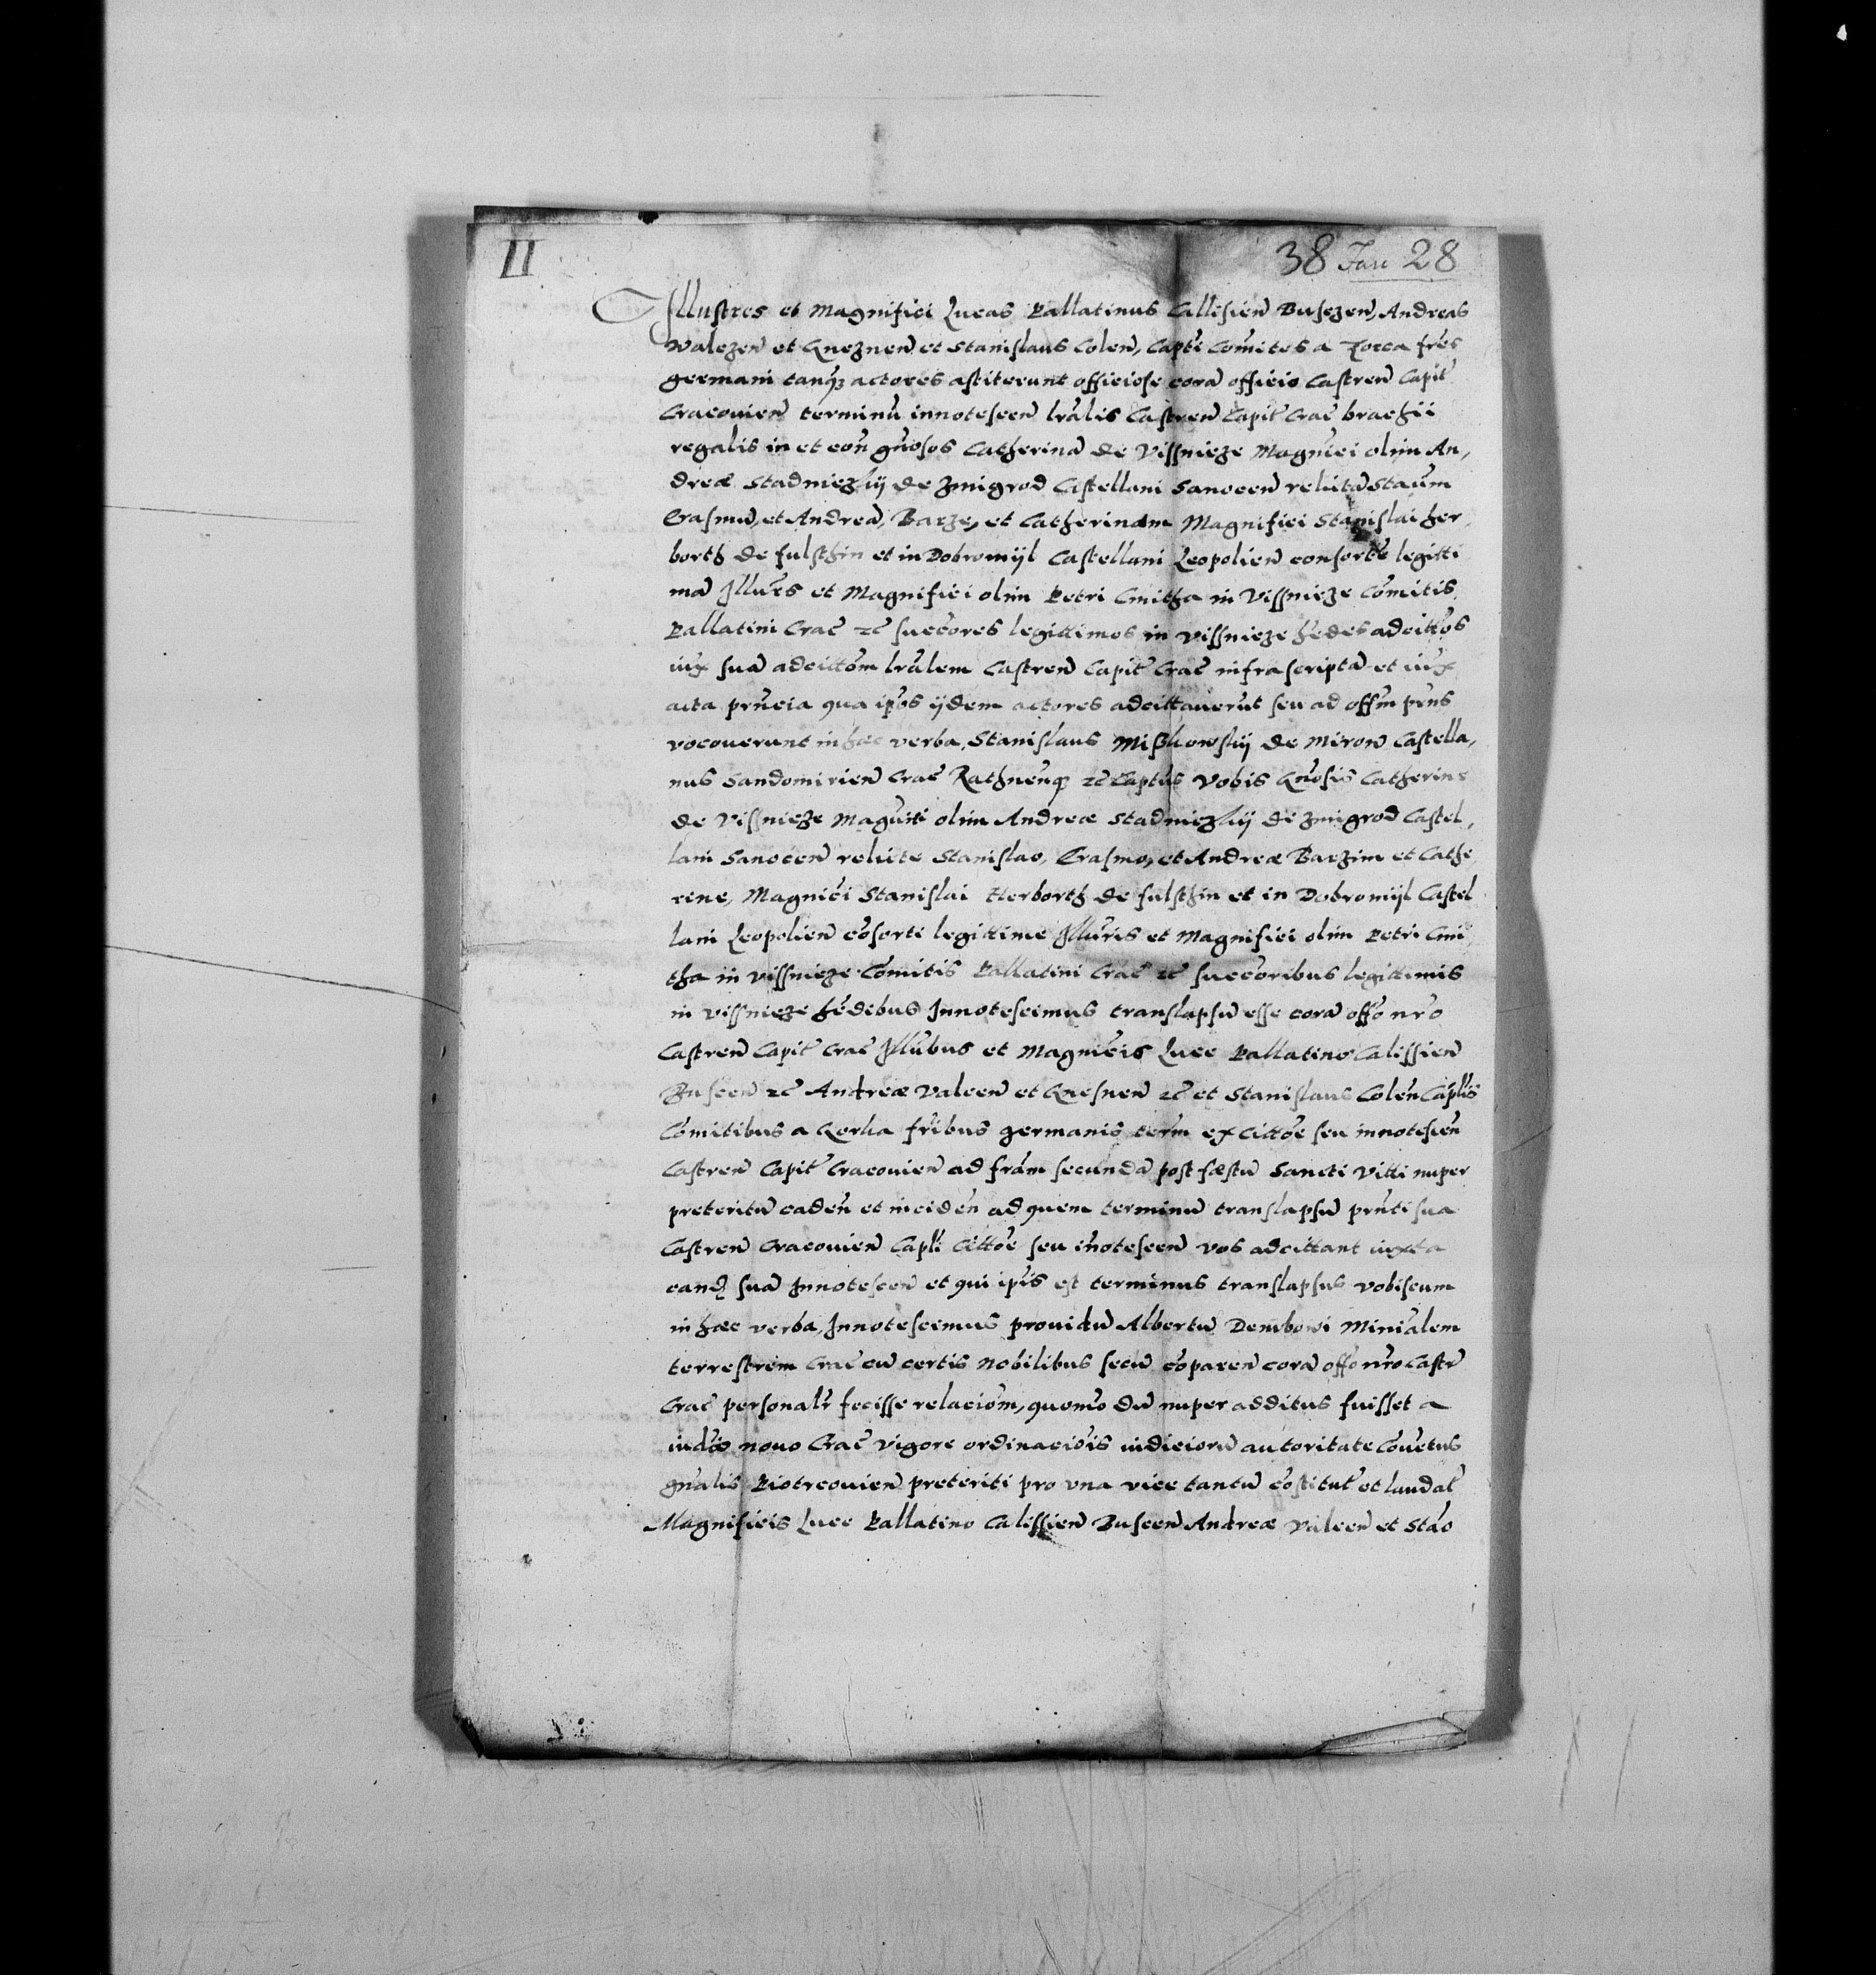 II
38 Jan 28
Illustres et Magnifici Lucas Pallatinus Callisień Busczeń, Andreas
Walczeń et Gnezneń et Stanislaus Coleń, Capt̃i Comites a Gorca fr̃es
germani tanq̃ actores astiterunt officiose corã officio Castreń Capit̃
Cracovień terminũ innotesceń lr̃alis Castreń Capit̃ Crac̃ brachii
regalis in et con gñosos Catherinã de Vissnicze Magnĩci olim An,
dreæ Stadniczkij de Zmigrod Castellani Sanoceń relictã Staũm
Erasmũ, et Andreã, Barze, et Catherinam Magnifici Stanislai Her,
borth de fulsthin et in Dobromijl Castellani Leopolień consortẽ legitti
mã Illũrs et Magnifici olim Petri Cmitha in Vissnicze Comitis,
Pallatini Crac̃ zc̃ succ̃ores legittimos in Vissnicze hẽdes adcittõs
iux̃ suã adcittõm lr̃alem Castreń Capit̃ Crac̃ infrascriptã et iux̃
acta prñcia qua ip̃os ijdem actores adcittaverũt seu ad off̃m prñs
vocoverunt in hæc verba, Stanislaus Mißkowskij de Mirow Castella,
nus Sandomirień Crac̃ Rathneñq̃ zc̃ Capt̃us Vobis Gñosis Catherine
de Vissnicze Magnĩti olim Andreæ Stadniczkij de Zmigrod Castel,
lani Sanoceń relicte Stanislao, Erasmo, et Andreæ Barzim et Cathe
rine, Magnĩci Stanislai Herborth de fulsthin et in Dobromijl Castel
lani Leopolień cõsorti legittime Illũris et Magnifici olim Petri Cmi
tha in Vissnicze Comitis Pallatini Crac̃ zc̃ succ̃oribus legittimis
in Vissnicze hẽdibus Innotescimus translapsũ esse corã off̃o nr̃o
Castreń Capit̃ Crac̃ Illũbus et Magnĩcis Luce Pallatino Calissień
Busceń zc̃ Andreæ Valceń et Gnesneń zc̃ et Stanislaus Coleń Capt̃is
Comitibus a Gorka fr̃ibus germanis ter̃m ex cittõe seu innotesceń
Castreń Capit̃ Cracovień ad fr̃am secundã post fæstũ Sancti Vitti nuper
preteritũ cadeń et incideń ad quem terminũ translapsũ prñti sua
Castreń Cracovień Capt̃i cittõe seu iñotesceń vos adcittant iuxta
eand̃ suã Innotesceń et qui ip̃is est terminus translapsus vobiscum
in hæc verba, Innotescimus providũ Albertũ Dembowi Miniãlem
terrestrem Crac̃ cũ certis nobilibus secũ cõpareń corã off̃o nr̃o Castr̃
Crac̃ personalr̃ fecisse relaciõm, quomõ dũ nuper additus fuisset a
iudõ novo Crac̃ vigore ordinaciõis iudiciorũ autoritate Coñetus
gñalis Piotrcovień preteriti pro una vice tantũ cõstitut̃ et laudat̃
Magnificis Luce Pallatino Calissień Busceń Andreæ Valceń et Stão